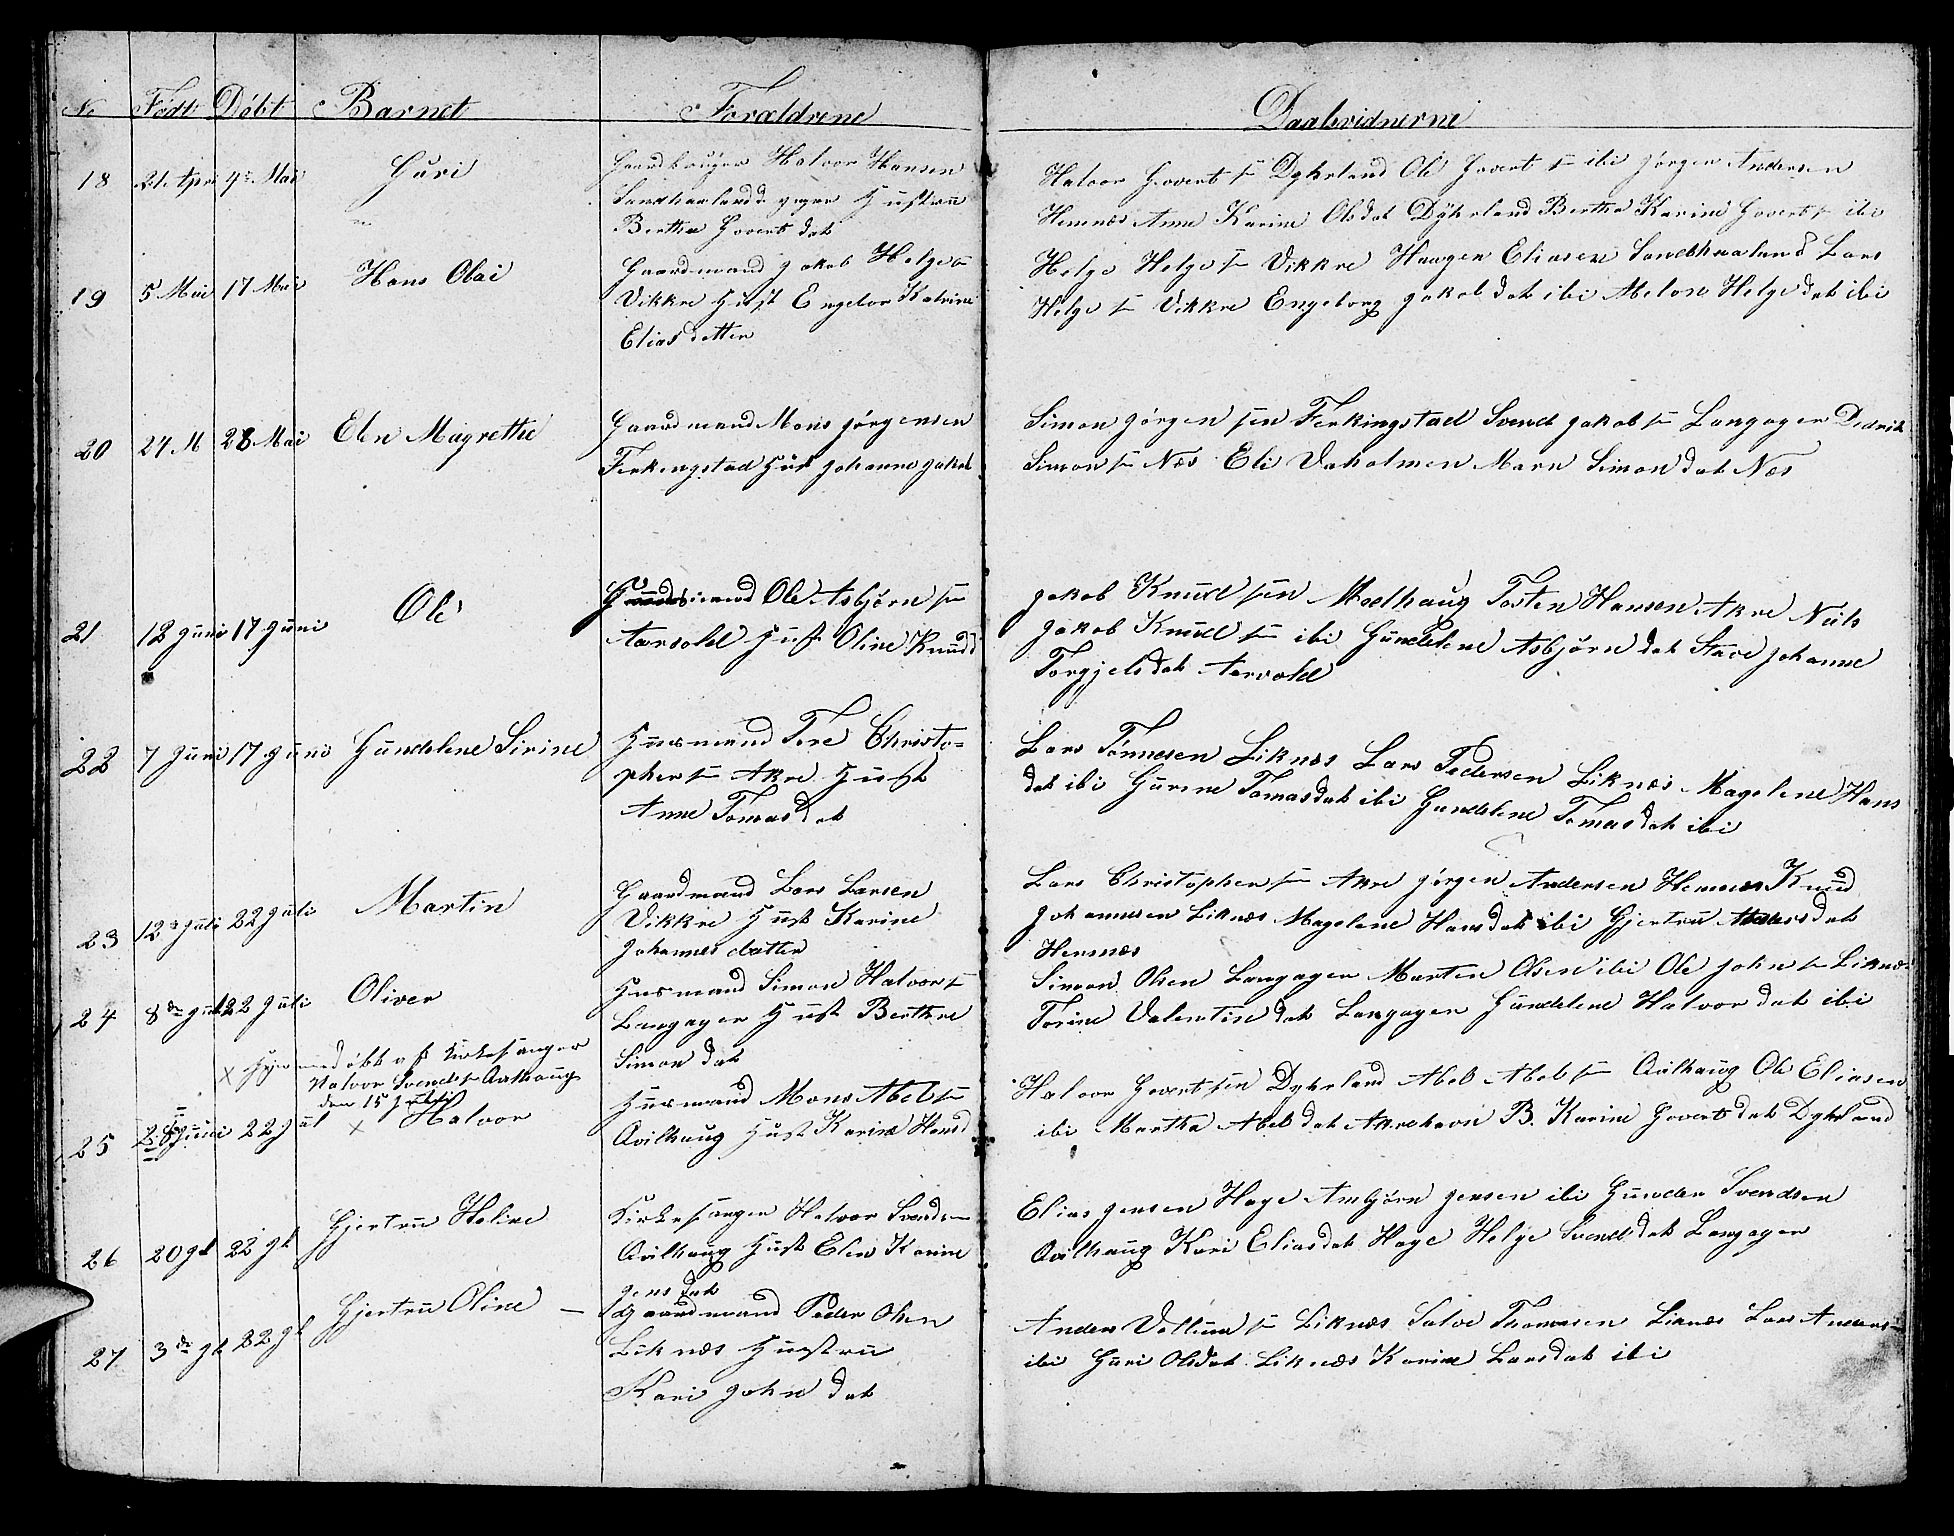 No Født Døbt Barnet Forældrene Daabvidnerne
18 21 April 4de Mai Guri
Gaardbruger Halvor Hansen
Sandhaaland Hustru
Bertha Govertsdat
Halvor Govert s Dyhrland Ole Govert s ibi Jørgen Andersen
Hemnæs Anne Karine Olsdat Dÿhrland Bertha Karine Govert s ibi
19 5 Mai 17 Mai Hans Olai
Gaardmand Jakob Helge s
Vikkre Hust Engebor Katrine
Eliasdatter
Helge Helge s Vikkre Haagen Eliasen Sandhaaland Lars
Helge s Vikkre Engeborg Jakobdat ibi Abelone Helgedat ibi
20 24 M 28 Mai Elen Magrethe
Gaardmand Mons Jørgensen
Ferkengstad Hus Johanne Jakob
Simon Jørgensen Ferkingstad Svend Jakob s Langager Dedrik
Simon s Næs Eli Vaholmen Maren Simondat Næs
21 12 Juni 17 Juni Ole
mand Ole Asbjørn s
Aarvold Hust Oline Knudd
Jakob Knudsen Medhaug Tosten Hansen Akre Niels
Jakob Knud s ibi Gundelene Asbjørndat Stave Johanne
Torgjelsdat Aarvold
22 7 Juni 17 Juni Gundelene Sirine
Husmand Tore Christo-
pher s Akre Hust
Anne Tomasdat
Lars Tønnesen Liknæs Lars Pedersen Liknæs Magelene Hans
dat ibi Gurine Tomasdat ibi Gundelene Tomasdat ibi
23 12te Juli 22 Juli Martin
Gaardmand Lars Larsen
Vikkre Hust Karine
Johannesdatter
Lars Christopher s Akre Jørgen Andersen Hemnæs Knud
Johannesen Liknæs Magelene Hansdat ibi Gjertru dat
Hemnæs
24 8de Juli 22 Juli Oliver
Husmand Simon Halvor s
Langager Hust Berthe
Simondat
Simon Olsen Langager Marten Olsen ibi Ole John s Liknæs
Torine Valentindat Langager Gundelene Halvordat ibi
x Hjemmedøbt af Kirkesanger
Halvor Svends Avilhaug
den 15 Juli
25 28 Juni 22 Jul x Halvor
Husmand Mons Abel s
Avilhaug Hust Karine Hansd
Halvor Govertsen Dyhrland Abel Abel s Avilhaug Ole Eliasen
ibi Martha Abeldat Akrehavn B. Karine Govertsdat Dyhrland
26 20 Jl 22 Jl Gjertru Heline
Kirkesanger Halvor Svends
Avilhaug Hust Elen Karine
Jensdat
Elias Jensen Hage Ambjørn Jensen ibi Gunder Svendsen
Avilhaug Kari Eliasdat Hage Helge Svendsdat Langager
27 3de Jl 22 Jl Gjertru Oline
Gaardmand Peder Olsen
Liknæs Hustru
Kari Johndat
Anders Vellum s Liknæs Salve Thomasen Liknæs Lars Anders
ibi Guri Olsdat Liknæs Karine Larsdat ibi